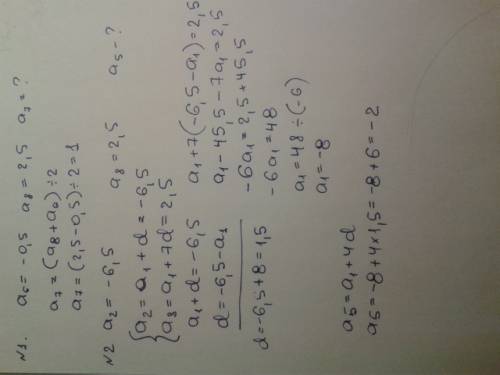 №1. a₆ = -0,5 a₈ = 2,5 a₇ = ?
a₇ = (a₈ + a₆) ÷ 2
a₇ = (2,5 - 0,5) ÷ 2 = 1
№2 a₂ = -6,5 a₈ = 2,5 a₅ - ?
{a₂ = a₁ + d = -6,5
{a₈ = a₁ + 7d = 2,5
a₁ + d = -6,5
d = -6,5 - a₁
d = -6,5 + 8 = 1,5
a₁ + 7(-6,5 - a₁) = 2,5
a₁ - 45,5 - 7a₁ = 2,5
-6a₁ = 2,5 + 45,5
-6a₁ = 48
a₁ = 48 ÷ (-6)
a₁ = -8
a₅ = a₁ + 4d
a₅ = -8 + 4 × 1,5 = -8 + 6 = -2